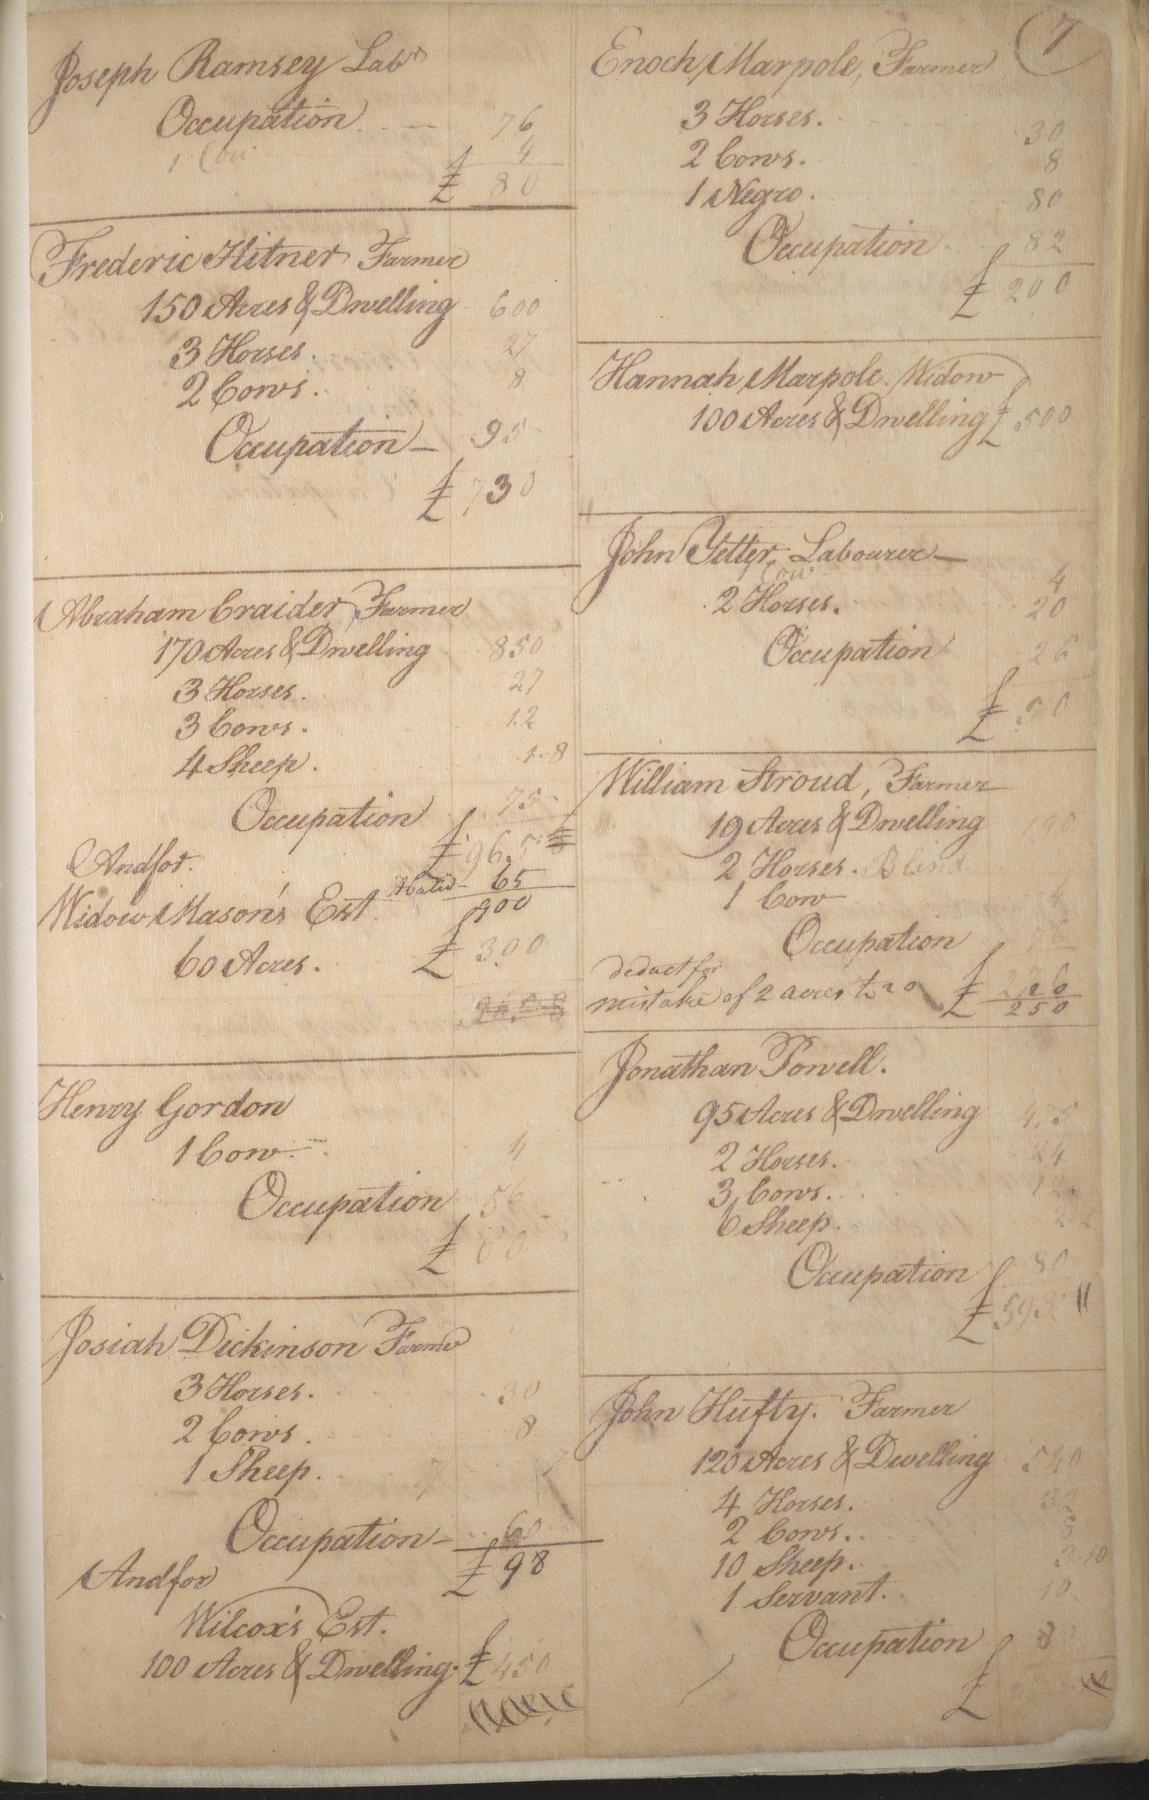 7
Joseph Ramsey Labr
Occupation 76
1 Cow 4
£ 80
Frederic Hitner Farmer
150 Acres & Dwelling 600
3 Horses. 27
2 Cows. 8
Occupation 95
£ 730
Abraham Craider, Farmer
170 Acres & Dwelling 850
3 Horses. 27
3 Cows. 12
4 Sheep. 1.8
Occupation 75
£ 965
Abated 65
900
Andfor.
Widow Mason's Est.
60 Acres. £ 300
Henry Gordon
1 Cow 4
Occupation 56
£ 60
Josiah Dickinson Farmer
3 Horses. 30
2 Cows. 8
1 Sheep.
Occupation 60
£ 98
Andfor
Wilcox's Est.
100 Acres & Dwelling. £ 450
Enoch Marpole, Farmer
3 Horses. 30
2 Cows. 8
1 Negro. 80
Occupation 82
£ 200
Hannah Marpole. Widow
100 Acres & Dwelling £ 500
John Yetter, Labourer
1 Cow 4
2 Horses. 20
Occupation 26
£ 50
William Stroud, Farmer
19 Acres & Dwelling 190
2 Horses. Blind
1 Cow 4
Occupation 76
£ 270
deduct for
mistake of 2 acres to 20
£ 250
Jonathan Powell.
95 Acres & Dwelling 475
2 Horses. 24
3 Cows. 12
6 Sheep.
Occupation 80
£ 593
John Hufty. Farmer
120 Acres & Dwelling 540
4 Horses. 32
2 Cows. 8
10 Sheep. 3.10
1 Servant. 10
Occupation
£